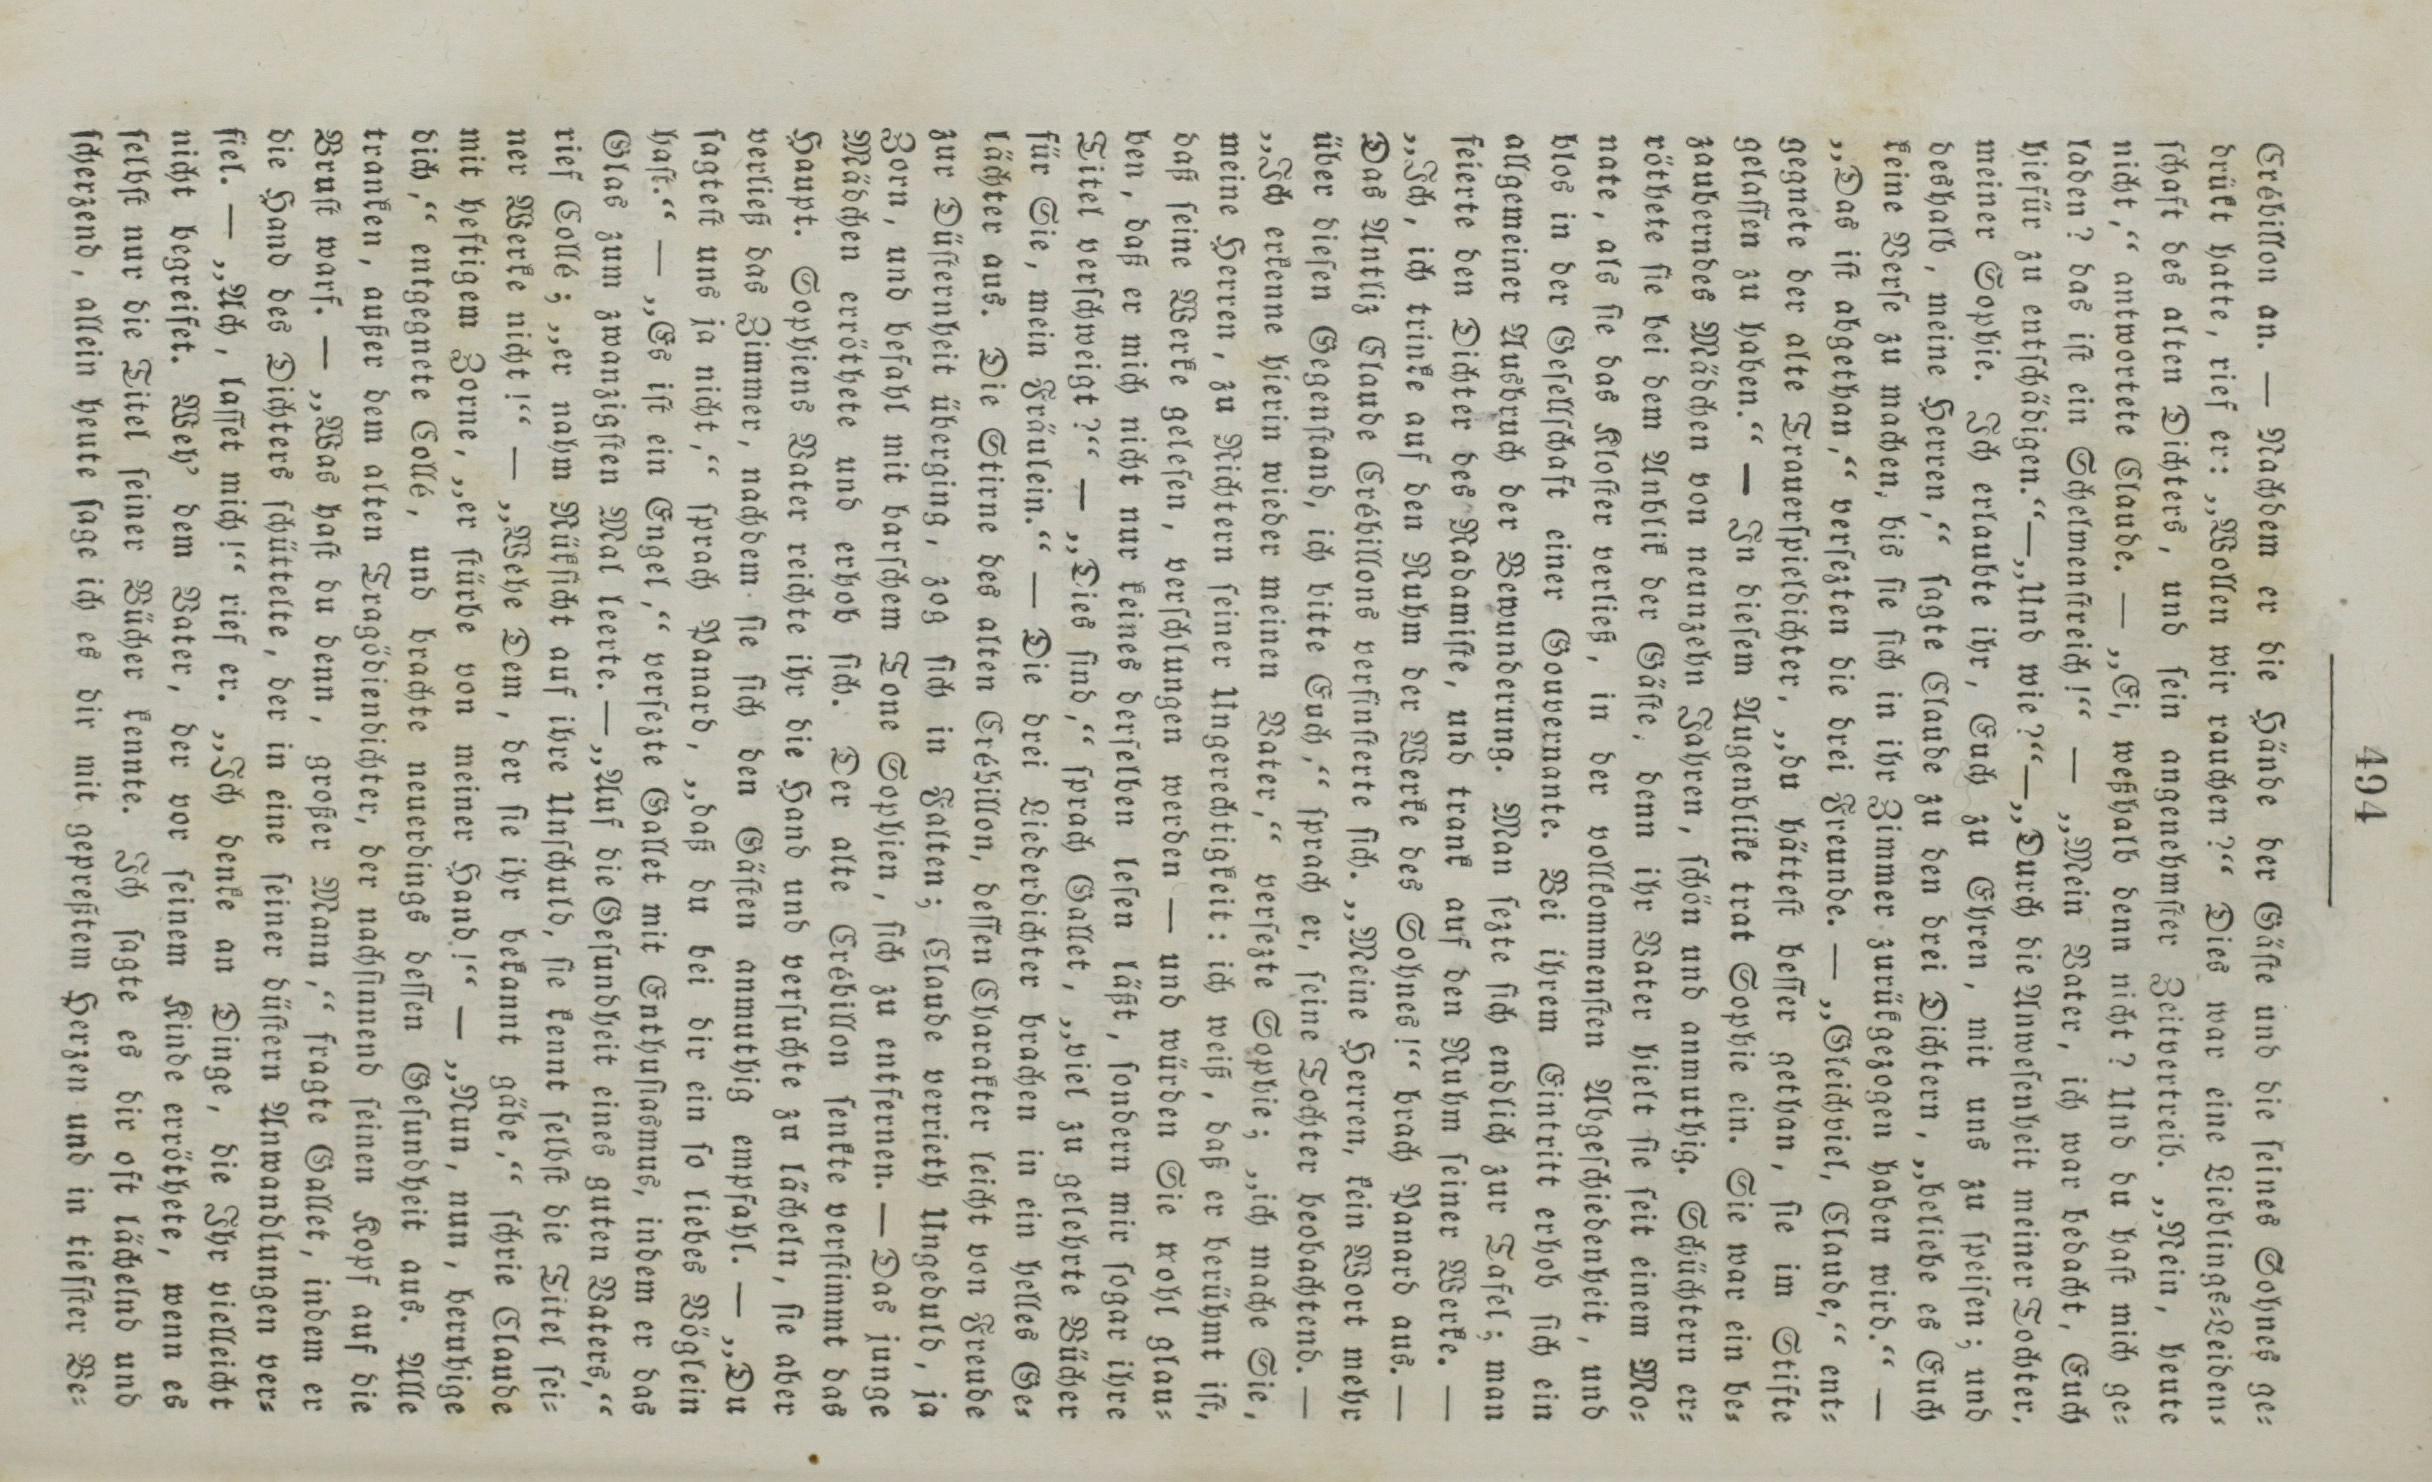 494
Crebillon an. — Nachdem er die Hände der Gäste und die seines Sohnes ge=
drükt hatte, rief er: „Wollen wir rauchen?“ Dies war eine Lieblings=Leiden=
schaft des alten Dichters, und sein angenehmster Zeitvertreib. „Nein, heute
nicht,“ antwortete Claude. — „Ei, weßhalb denn nicht? Und du hast mich ge=
laden? das ist ein Schelmenstreich!“ — „Mein Vater, ich war bedacht, Euch
hiefür zu entschädigen.“ — „Und wie?“ — „Durch die Anwesenheit meiner Tochter,
meiner Sophie. Ich erlaubte ihr, Euch zu Ehren, mit uns zu speisen; und
deshalb, meine Herren,“ sagte Claude zu den drei Dichtern, „beliebe es Euch
keine Verse zu machen, bis sie sich in ihr Zimmer zurükgezogen haben wird.“ —
„Das ist abgethan,“ versezten die drei Freunde. — „Gleichviel, Claude,“ ent=
gegnete der alte Trauerspieldichter, „du hättest besser gethan, sie im Stifte
gelassen zu haben.“ — In diesem Augenblike trat Sophie ein. Sie war ein be=
zauberndes Mädchen von neunzehn Jahren, schön und anmuthig. Schüchtern er=
röthete sie bei dem Anblik der Gäste, denn ihr Vater hielt sie seit einem Mo=
nate, als sie das Kloster verließ, in der vollkommensten Abgeschiedenheit, und
blos in der Gesellschaft einer Gouvernante. Bei ihrem Eintritt erhob sich ein
allgemeiner Ausbruch der Bewunderung. Man sezte sich endlich zur Tafel; man
feierte den Dichter des Radamiste, und trank auf den Ruhm seiner Werke. —
„Ich, ich trinke auf den Ruhm der Werke des Sohnes!“ brach Panard aus. —
Das Antliz Claude Crébillons verfinsterte sich. „Meine Herren, kein Wort mehr
über diesen Gegenstand, ich bitte Euch,“ sprach er, seine Tochter beobachtend. —
„Ich erkenne hierin wieder meinen Vater,“ versezte Sophie; „ich mache Sie,
meine Herren, zu Richtern seiner Ungerechtigkeit: ich weiß, daß er berühmt ist,
daß seine Werke gelesen, verschlungen werden — und würden Sie wohl glau=
ben, daß er mich nicht nur keines derselben lesen läßt, sondern mir sogar ihre
Titel verschweigt?“ — „Dies sind,“ sprach Gallet, „viel zu gelehrte Bücher
für Sie, mein Fräulein.“ — Die drei Liederdichter brachen in ein helles Ge=
lächter aus. Die Stirne des alten Crébillon, dessen Charakter leicht von Freude
zur Düsternheit überging, zog sich in Falten; Claude verrieth Ungeduld, ja
Zorn, und befahl mit barschem Tone Sophien, sich zu entfernen. — Das junge
Mädchen erröthete und erhob sich. Der alte Crébillon senkte verstimmt das
Haupt. Sophiens Vater reichte ihr die Hand und versuchte zu lächeln, sie aber
verließ das Zimmer, nachdem sie sich den Gästen anmuthig empfahl. — „Du
sagtest uns ja nicht,“ sprach Panard, „daß du bei dir ein so liebes Vöglein
hast.“ — „Es ist ein Engel,“ versezte Gallet mit Enthusiasmus, indem er das
Glas zum zwanzigsten Mal leerte. — „Auf die Gesundheit eines guten Vaters,“
rief Collé; „er nahm Rüksicht auf ihre Unschuld, sie kennt selbst die Titel sei=
ner Werke nicht!“ — „Wehe Dem, der sie ihr bekannt gäbe,“ schrie Claude
mit heftigem Zorne, „er stürbe von meiner Hand!“ — „Nun, nun, beruhige
dich,“ entgegnete Collé, und brachte neuerdings dessen Gesundheit aus. Alle
tranken, außer dem alten Tragödiendichter, der nachsinnend seinen Kopf auf die
Brust warf. — „Was hast du denn, großer Mann,“ fragte Gallet, indem er
die Hand des Dichters schüttelte, der in eine seiner düstern Anwandlungen ver=
fiel. — „Ach, lasset mich!“ rief er. „Ich denke an Dinge, die Ihr vielleicht
nicht begreifet. Weh’ dem Vater, der vor seinem Kinde erröthete, wenn es
selbst nur die Titel seiner Bücher kennte. Ich sagte es dir oft lächelnd und
scherzend, allein heute sage ich es dir mit gepreßtem Herzen und in tiefster Be=